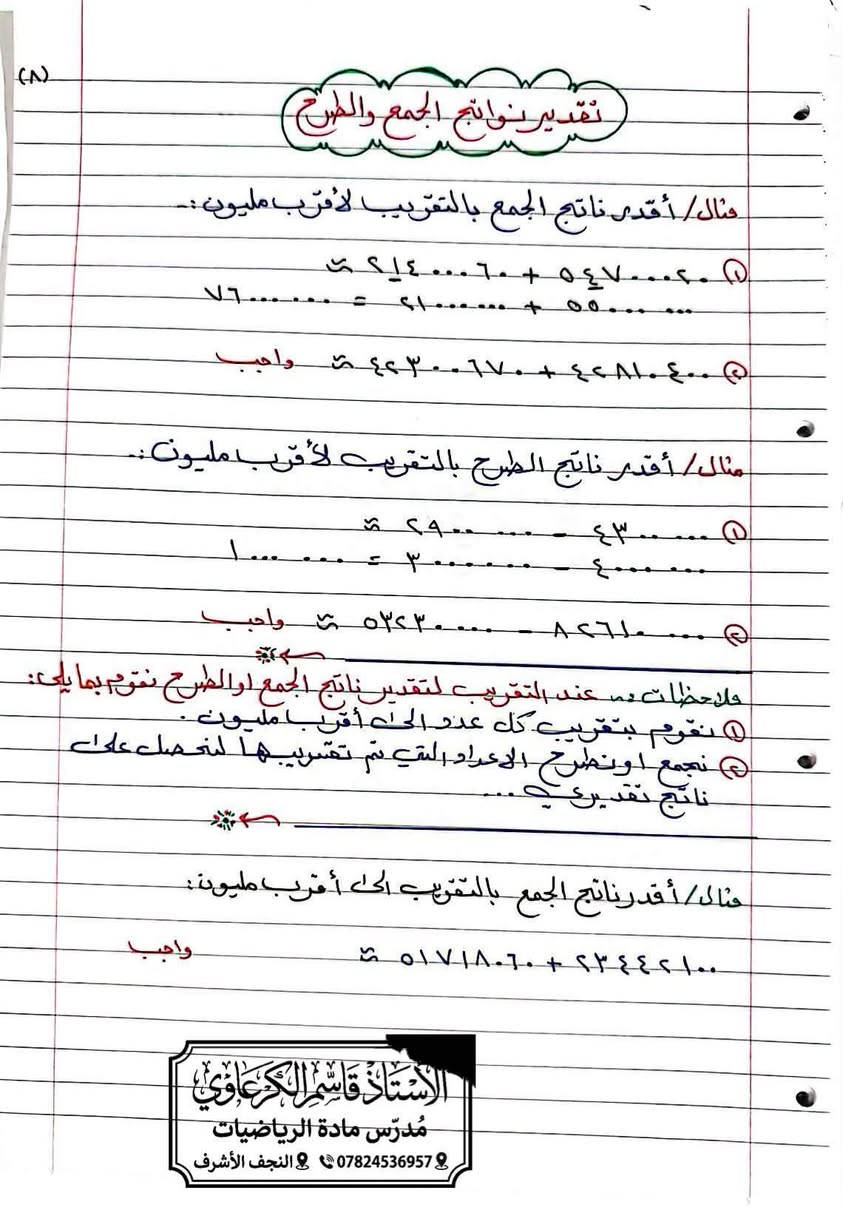 (٨)
تقدير نواتج الجمع والطرح
مثال/ أقدر ناتج الجمع بالتقريب لأقرب مليون:-
① ٥٤٧٠٠٠٢٠ + ٢١٤٠٠٠٦٠ ≈
٥٥٠٠٠٠٠٠ + ٢١٠٠٠٠٠٠ = ٧٦٠٠٠٠٠٠
② ٤٢٨١٠٤٠٠ + ٤٢٣٠٠٦٧٠ ≈ واجب
مثال/ أقدر ناتج الطرح بالتقريب لأقرب مليون:-
① ٤٣٠٠٠٠٠ - ٢٩٠٠٠٠٠ ≈
٤٠٠٠٠٠٠ - ٣٠٠٠٠٠٠ = ١٠٠٠٠٠٠
② ٨٢٦١٠٠٠٠ - ٥٣٢٣٠٠٠٠ ≈ واجب
ملاحظات عند التقريب لتقدير ناتج الجمع او الطرح نقوم بما يلي:
① نقوم بتقريب كل عدد الى أقرب مليون.
② نجمع او نطرح الاعداد التي تم تقريبها لنحصل على
ناتج تقديري...
مثال/ أقدر ناتج الجمع بالتقريب الى أقرب مليون:
٢٣٤٤٢١٠٠ + ٥١٧١٨٠٦٠ ≈ واجب
الأستاذ قاسم الكرعاوي
مُدرّس مادة الرياضيات
07824536957 النجف الأشرف